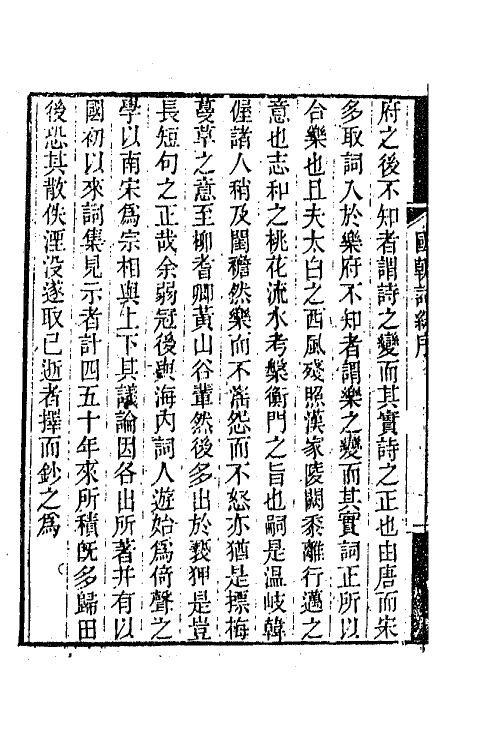 府之後不知者謂詩之變而其實詩之正也由唐而宋
多取詞入於樂府不知者謂樂之變而其實詞正所以
合樂也且夫太白之西風殘照漢家陵闕黍離行邁之
意也志和之桃花流水考槃衡門之旨也嗣是温岐韓
偓諸人稍及閨襜然樂而不淫怨而不怒亦猶是摽梅
蔓草之意至柳耆卿黃山谷輩然後多出於褻狎是豈
長短句之正哉余弱冠後與海内詞人遊始爲倚聲之
學以南宋爲宗相與上下其議論因各出所著并有以
國初以來詞集見示者計四五十年來所積既多歸田
後恐其散佚湮没遂取已逝者擇而鈔之爲
國朝詞綜序